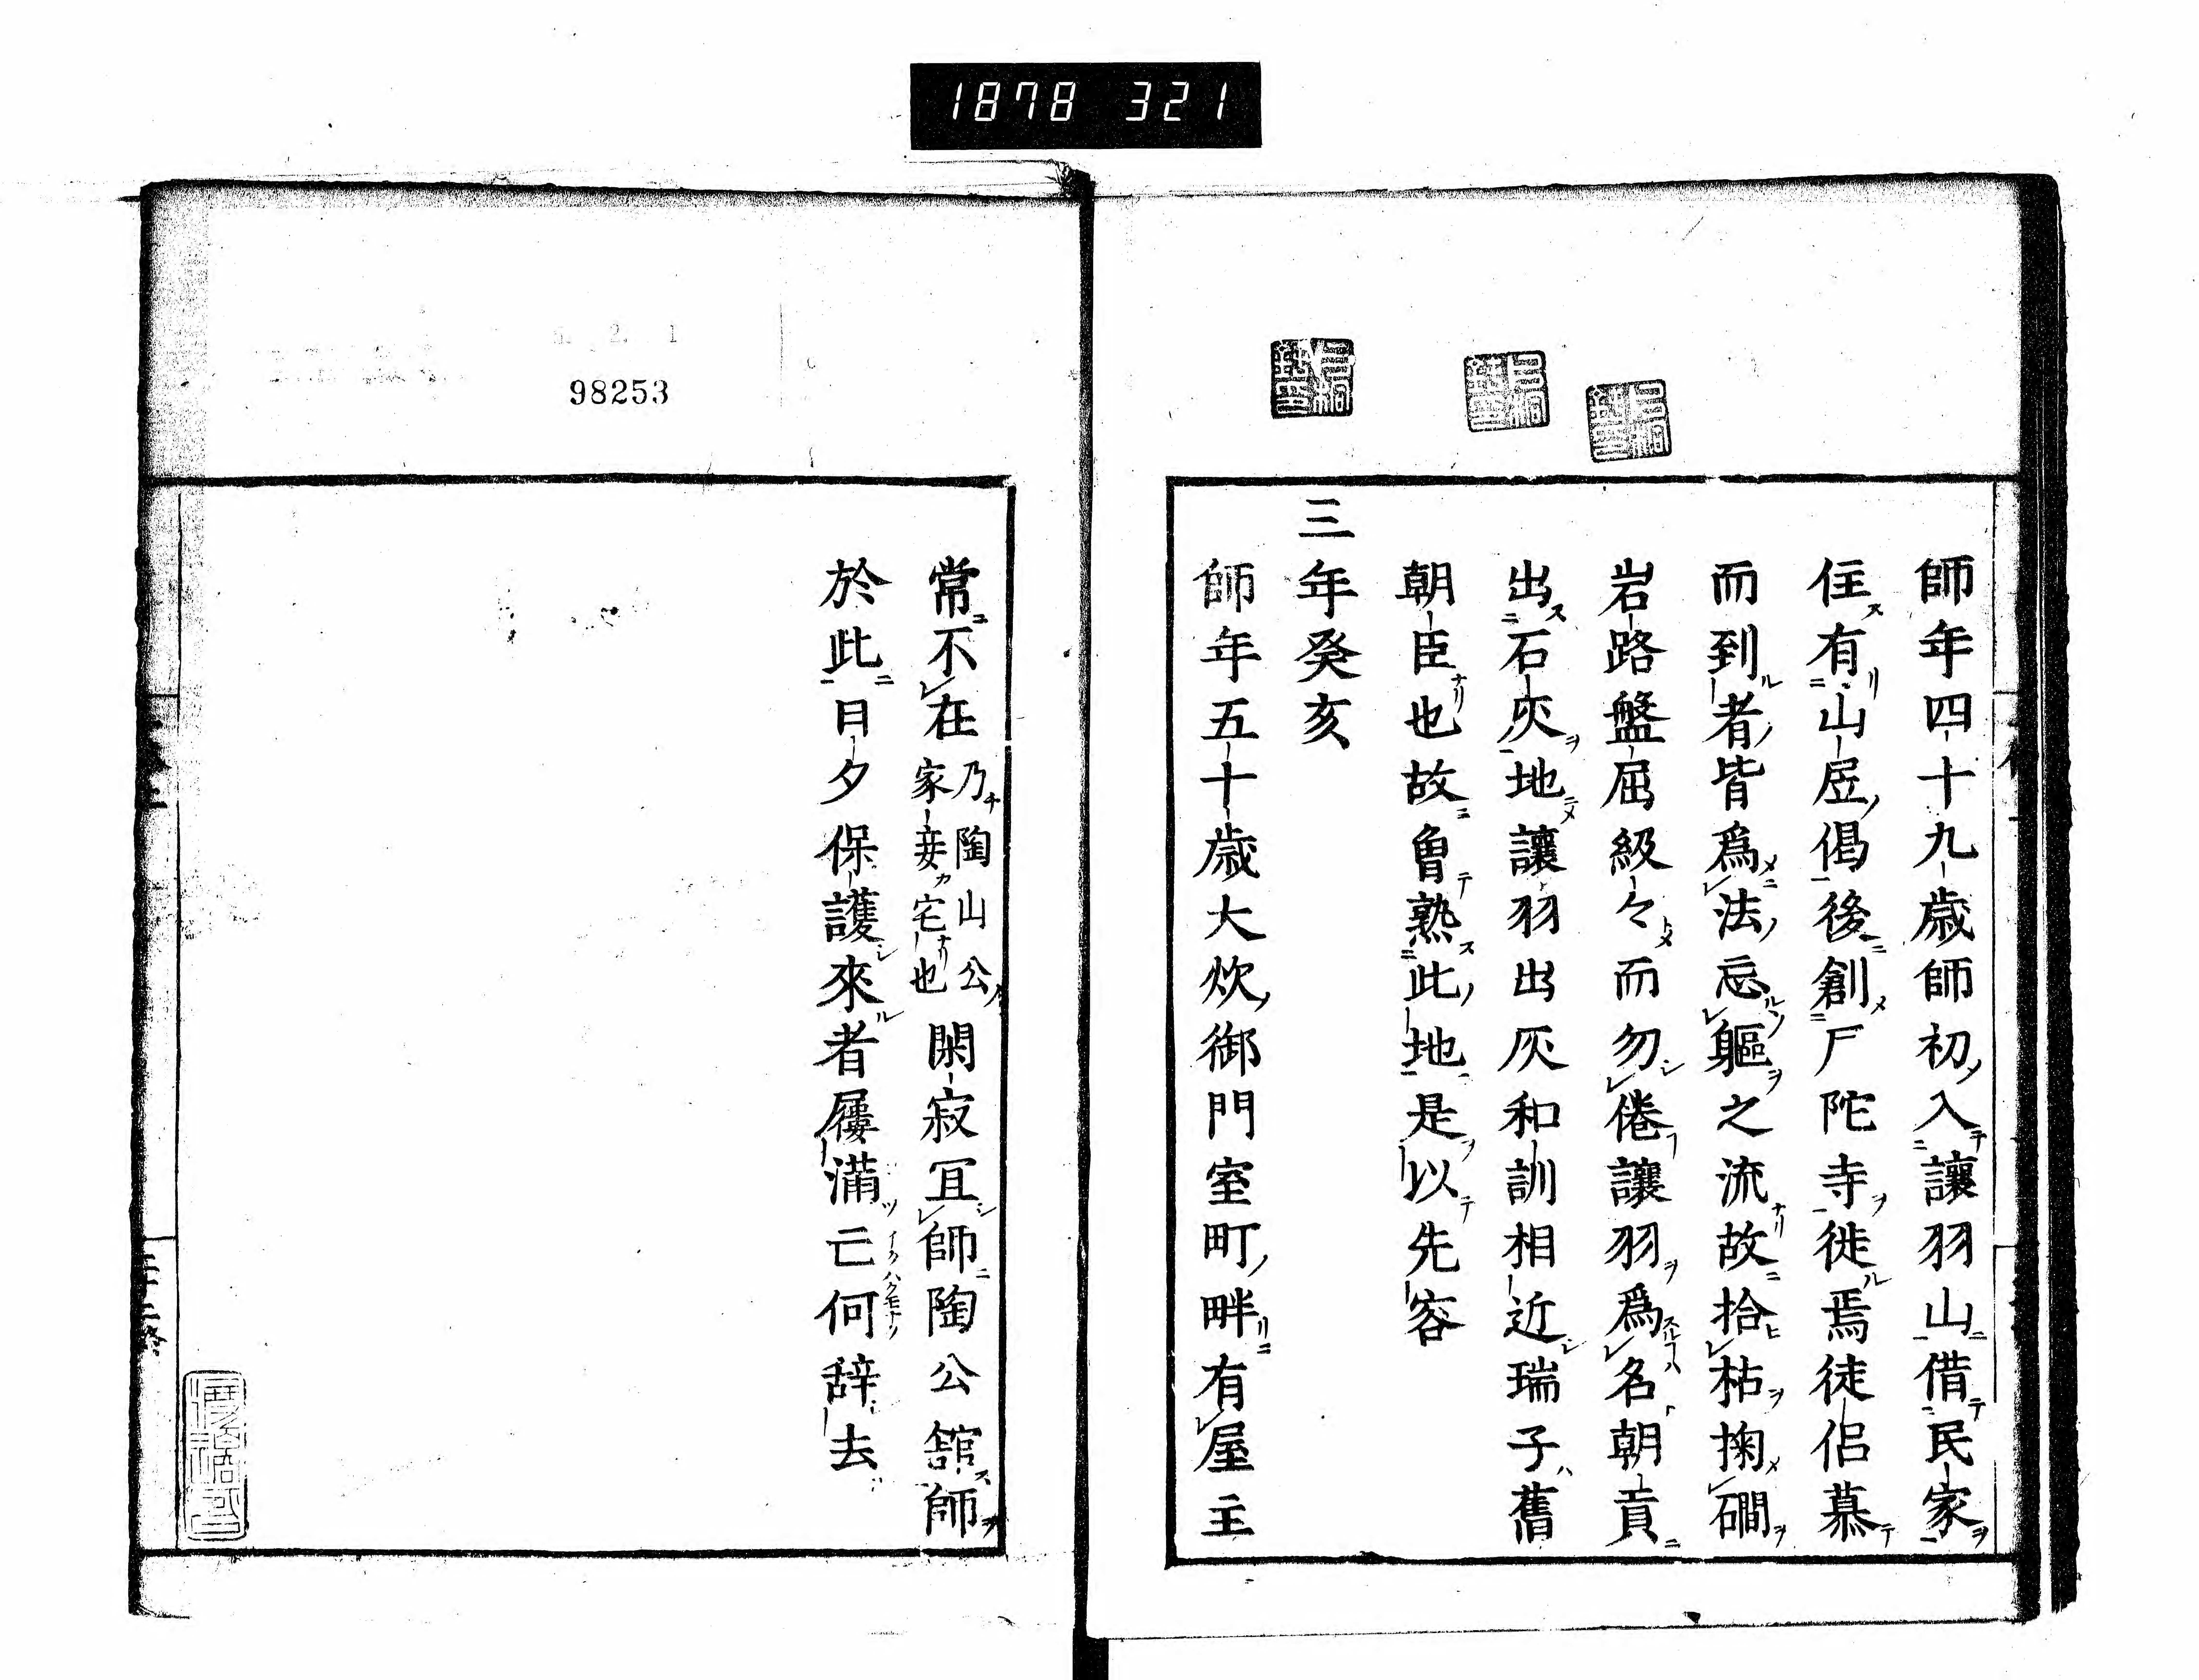 1878 321
師年四十九歳師初入讓羽山借民家
住有山居偈後創尸陀寺徙焉徒侶慕
而到者皆爲法忘軀之流故拾枯掬磵
岩路盤屈級々而勿倦讓羽爲名朝貢
出石灰地讓羽出灰和訓相近瑞子舊
朝臣也故曾熟此地是以先容
三年癸亥
師年五十歳大炊御門室町畔有屋主
98253
常不在乃陶山公家妾宅也閑寂冝師陶公舘師
於此日夕保護來者屨滿亡何辞去